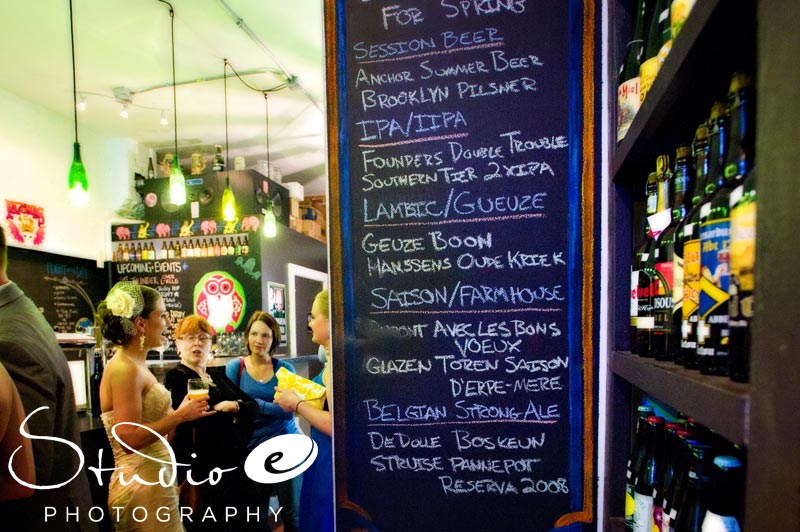 FOR SPRING
SESSION BEER
ANCHOR SUMMER BEER
BROOKLYN PILSNER
IPA/IIPA
FOUNDERS DOUBLE TROUBLE
SOUTHERN TIER 2XIPA
LAMBIC/GUEUZE
GEUZE BOON
HANSSENS OUDE KRIEK
SAISON/FARMHOUSE
DUPONT AVEC LES BONS
VOEUX
GLAZEN TOREN SAISON
D'ERPE-MERE
BELGIAN STRONG ALE
DEDOLLE BOSKEUN
STRUISE PANNEPOT
RESERVA 2008
UPCOMING EVENTS
Studio e
PHOTOGRAPHY